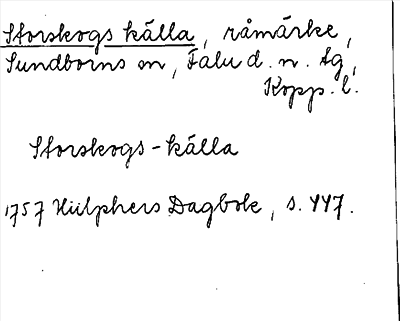 Storskogs källa, råmärke,
Sundborns sn, Falu d. n. tg,
Kopp. l.
Storskogs-källa
1757 Hülphers Dagbok, s. 447.